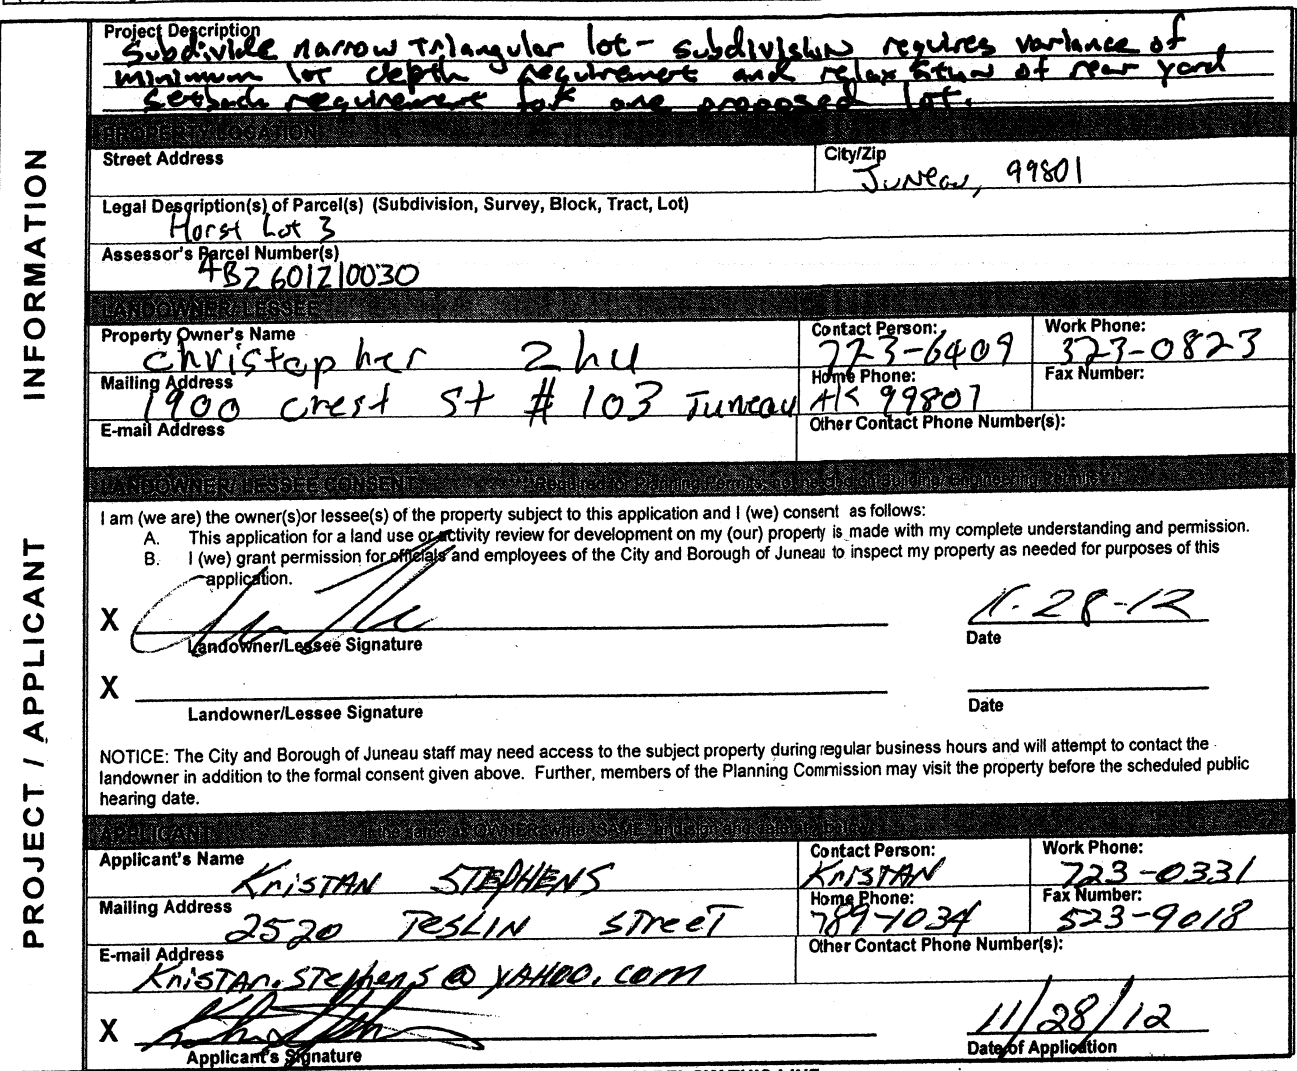 Project Description
Subdivide narrow triangular lot - subdivision requires variance of
minimum lot depth requirement and relaxation of rear yard
setback requirement for one proposed lot.
PROPERTY LOCATION
Street Address
City/Zip
Juneau, 99801
Legal Description(s) of Parcel(s) (Subdivision, Survey, Block, Tract, Lot)
Horst Lot 3
Assessor's Parcel Number(s)
4B2601210030
LANDOWNER/ LESSEE
Property Owner's Name
Christopher Zhu
Contact Person:
723-6409
Work Phone:
323-0823
Mailing Address
1900 Crest St # 103 Juneau AK 99801
Home Phone:
Fax Number:
E-mail Address
Other Contact Phone Number(s):
LANDOWNER/ LESSEE CONSENT
I am (we are) the owner(s)or lessee(s) of the property subject to this application and I (we) consent as follows:
A. This application for a land use or activity review for development on my (our) property is made with my complete understanding and permission.
B. I (we) grant permission for officials and employees of the City and Borough of Juneau to inspect my property as needed for purposes of this
application.
X
11-28-12
Landowner/Lessee Signature
Date
X
Landowner/Lessee Signature
Date
NOTICE: The City and Borough of Juneau staff may need access to the subject property during regular business hours and will attempt to contact the
landowner in addition to the formal consent given above. Further, members of the Planning Commission may visit the property before the scheduled public
hearing date.
APPLICANT
Applicant's Name
KRISTAN STEPHENS
Contact Person:
KRISTAN
Work Phone:
723-0331
Mailing Address
2520 TESLIN STREET
Home Phone:
789-1034
Fax Number:
523-9018
E-mail Address
Kristan.stephens@yahoo.com
Other Contact Phone Number(s):
X
11/28/12
Applicant's Signature
Date of Application
PROJECT / APPLICANT INFORMATION